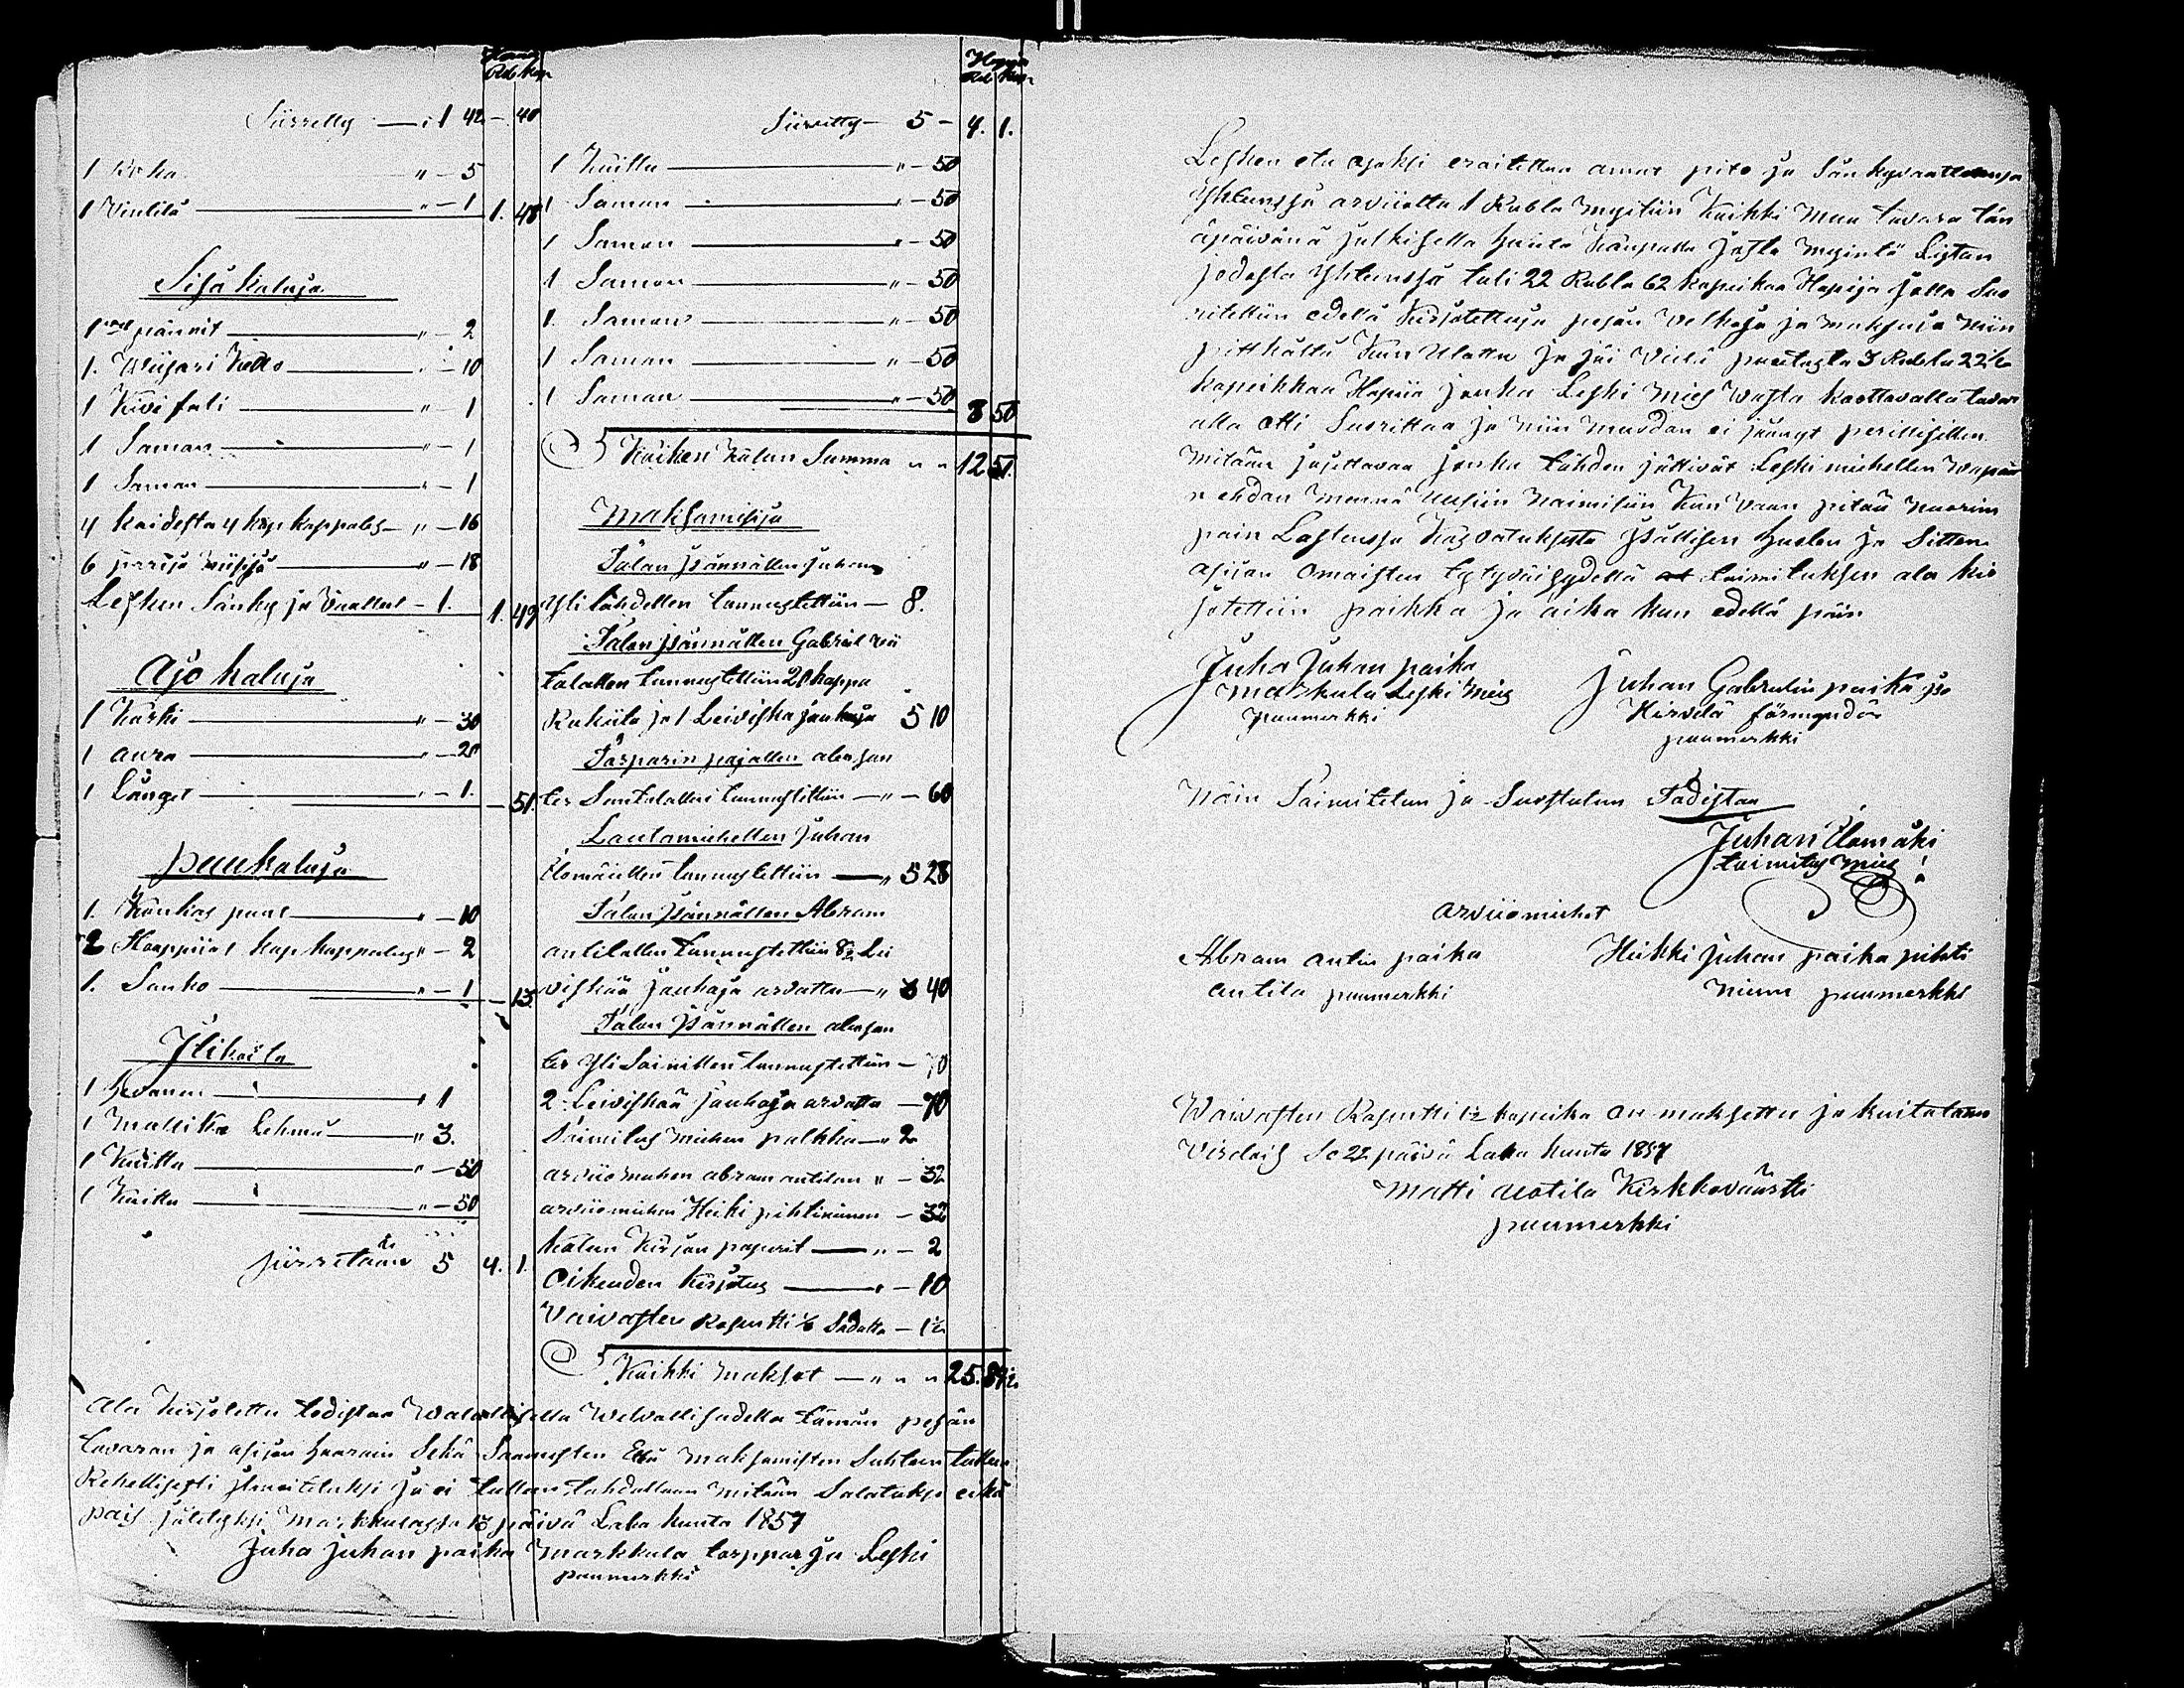 Hopia
Rub Kop
Siirretty 1 42 - 40
1 Koka " - 5
1 Vintilä " - 1 1. 48
Sisä kaluja
1 pännit " - 2
1. Wiisari Kello - 10
1 Kivi fati " - 1
1 Saman " - 1
1 Saman " - 1
4 kaidesta 4 kop kappales " - 16
6 paria " - 18
Lesken Sänky ja Vaattet - 1. 1. 49
Ajo kaluja
1 Kärki " - 30
1 aura " - 20
1 Länget " - 1. - 51.
puukaluja
1. Känkas puut " - 10
2 Kaappiiat kop kappales " - 2
1. Sanko " - 1 - 13
Jlikoita
1 Hevonen " 1
1 Mansikka Lehmä " 3.
1 Kuittu " - 50
1 Kuittu " - 50
siirretään 5 4. 1.
Hopia
Rub Kop
Siirretty 5 - 4. 1.
1 Kuittu " - 50
1 Saman " - 50
1 Saman " - 50
1 Saman " - 50
1. Saman " - 50
1 Saman " - 50
1 Saman " - 50 8 50
Kaiken Kalun Summa " " 12 51.
Maksamisia
Talon Jsännällen Juhan
Yli tähdellen tunnustettiin - 8.
Talon Jsännällen Gabriel
talallen tunnustettiin 20 kappa
Rukiita ja 1 Leiviskä jauhoja 5 10
Tarparin pojallen alexan
ter Santalallen tunnustettiin " - 60
Lautamiehellen Juhan
Ilomäellen tunnustettiin " 5 28
Talon Jsännällen Abram
antilallen tunnustettiin 8½ Lei
viskää jauhoja arvatta " 3 40
Talon Jsännällen alexan
ter Yli Sainillen tunnustettiin - 70
2 Leiviskää jauhoja arvatta - 70
Toimitus miehen palkkia " 2
arviio miehen abram antilan " - 32
arviio miehen Heiki pihlinimen - 32
kalun Kirjan paperit " - 2
Oikeuden kirjotus " - 10
Vaivasten Rosentti ⅛ Sadalta - 1½
Kaikki maksot " " " 25. 87½
Ala kirjoitettu todistaa Walallisella Welvallisudella tämän pesän
tavaran ja asijan haarain Sekä Saamisten Että Maksamisten Suhteen tullen
Rehellisesti jlmoitetuksi ja ei tullen tahdallaan mitään Salatuksi eikä
pois jätetyksi Markkulassa 13 päivä Loka kuuta 1857
Juha Juhan poika Markkula torppar ja Leski
puumerkki
Lesken etu ojaksi eroitettua annat pito ja Sänkyvaattensa
Yhteensä arviiolta 1 Rubla myitiin Kaikki Muu tavara tän
äpäivänä julkisella huuto Kaupalla josta myintä Listan
jodesta Yhteensä tuli 22 Rubla 62 kopeikaa Hopija jolla Suo
ritettiin edellä Kirjotettuja pesän Welkoja ja maksuja niin
pitkältä Kuin Ulattu ja jäi Vielä puutosta 3 Rubla 22½
kopeikkaa Hopiia jonka Leski mies Wasta koottavalla tavar
alla otti Suorittaa ja niin muodon ei jäänyt perillisillen
Mitään jajettavaa jonka tähden jättivät Leski miehellen Wapau
n ehdon mennä uusiin Naimisiin Kun Vaan pitää nuorim
pain Lastensa Kasvatuksesta jsällisen Huolen ja Sitten
asijan Omaisten tytyväisydellä toimituksen ala kir
jotettiin paikka ja aika kun edellä päin
Juha Juhan poika
Markula Leski mies
puumerkki
Juhan Gabrielin poika jso
Hirvelä förmyndär
puumerkki
Näin Toimitetun ja Suostutun Todistaa
Juhan Ilomäki
toimitus mies
arviiomiehet
Abram antin poika
antila puumerkki
Heikki Juhan poika pihti
niemi puumerkki
Waivasten Rosentti 1½ kopeika on maksettu ja kuitataan
Virdois Se 22 päivä Loka kuuta 1857
Matti Uotila Kirkkoväärtti
puumerkki